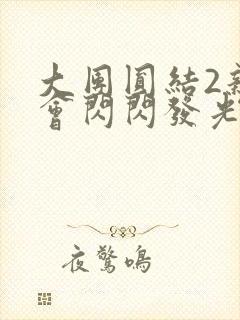 大團圓結2
會閃閃發光
夜驚鳴